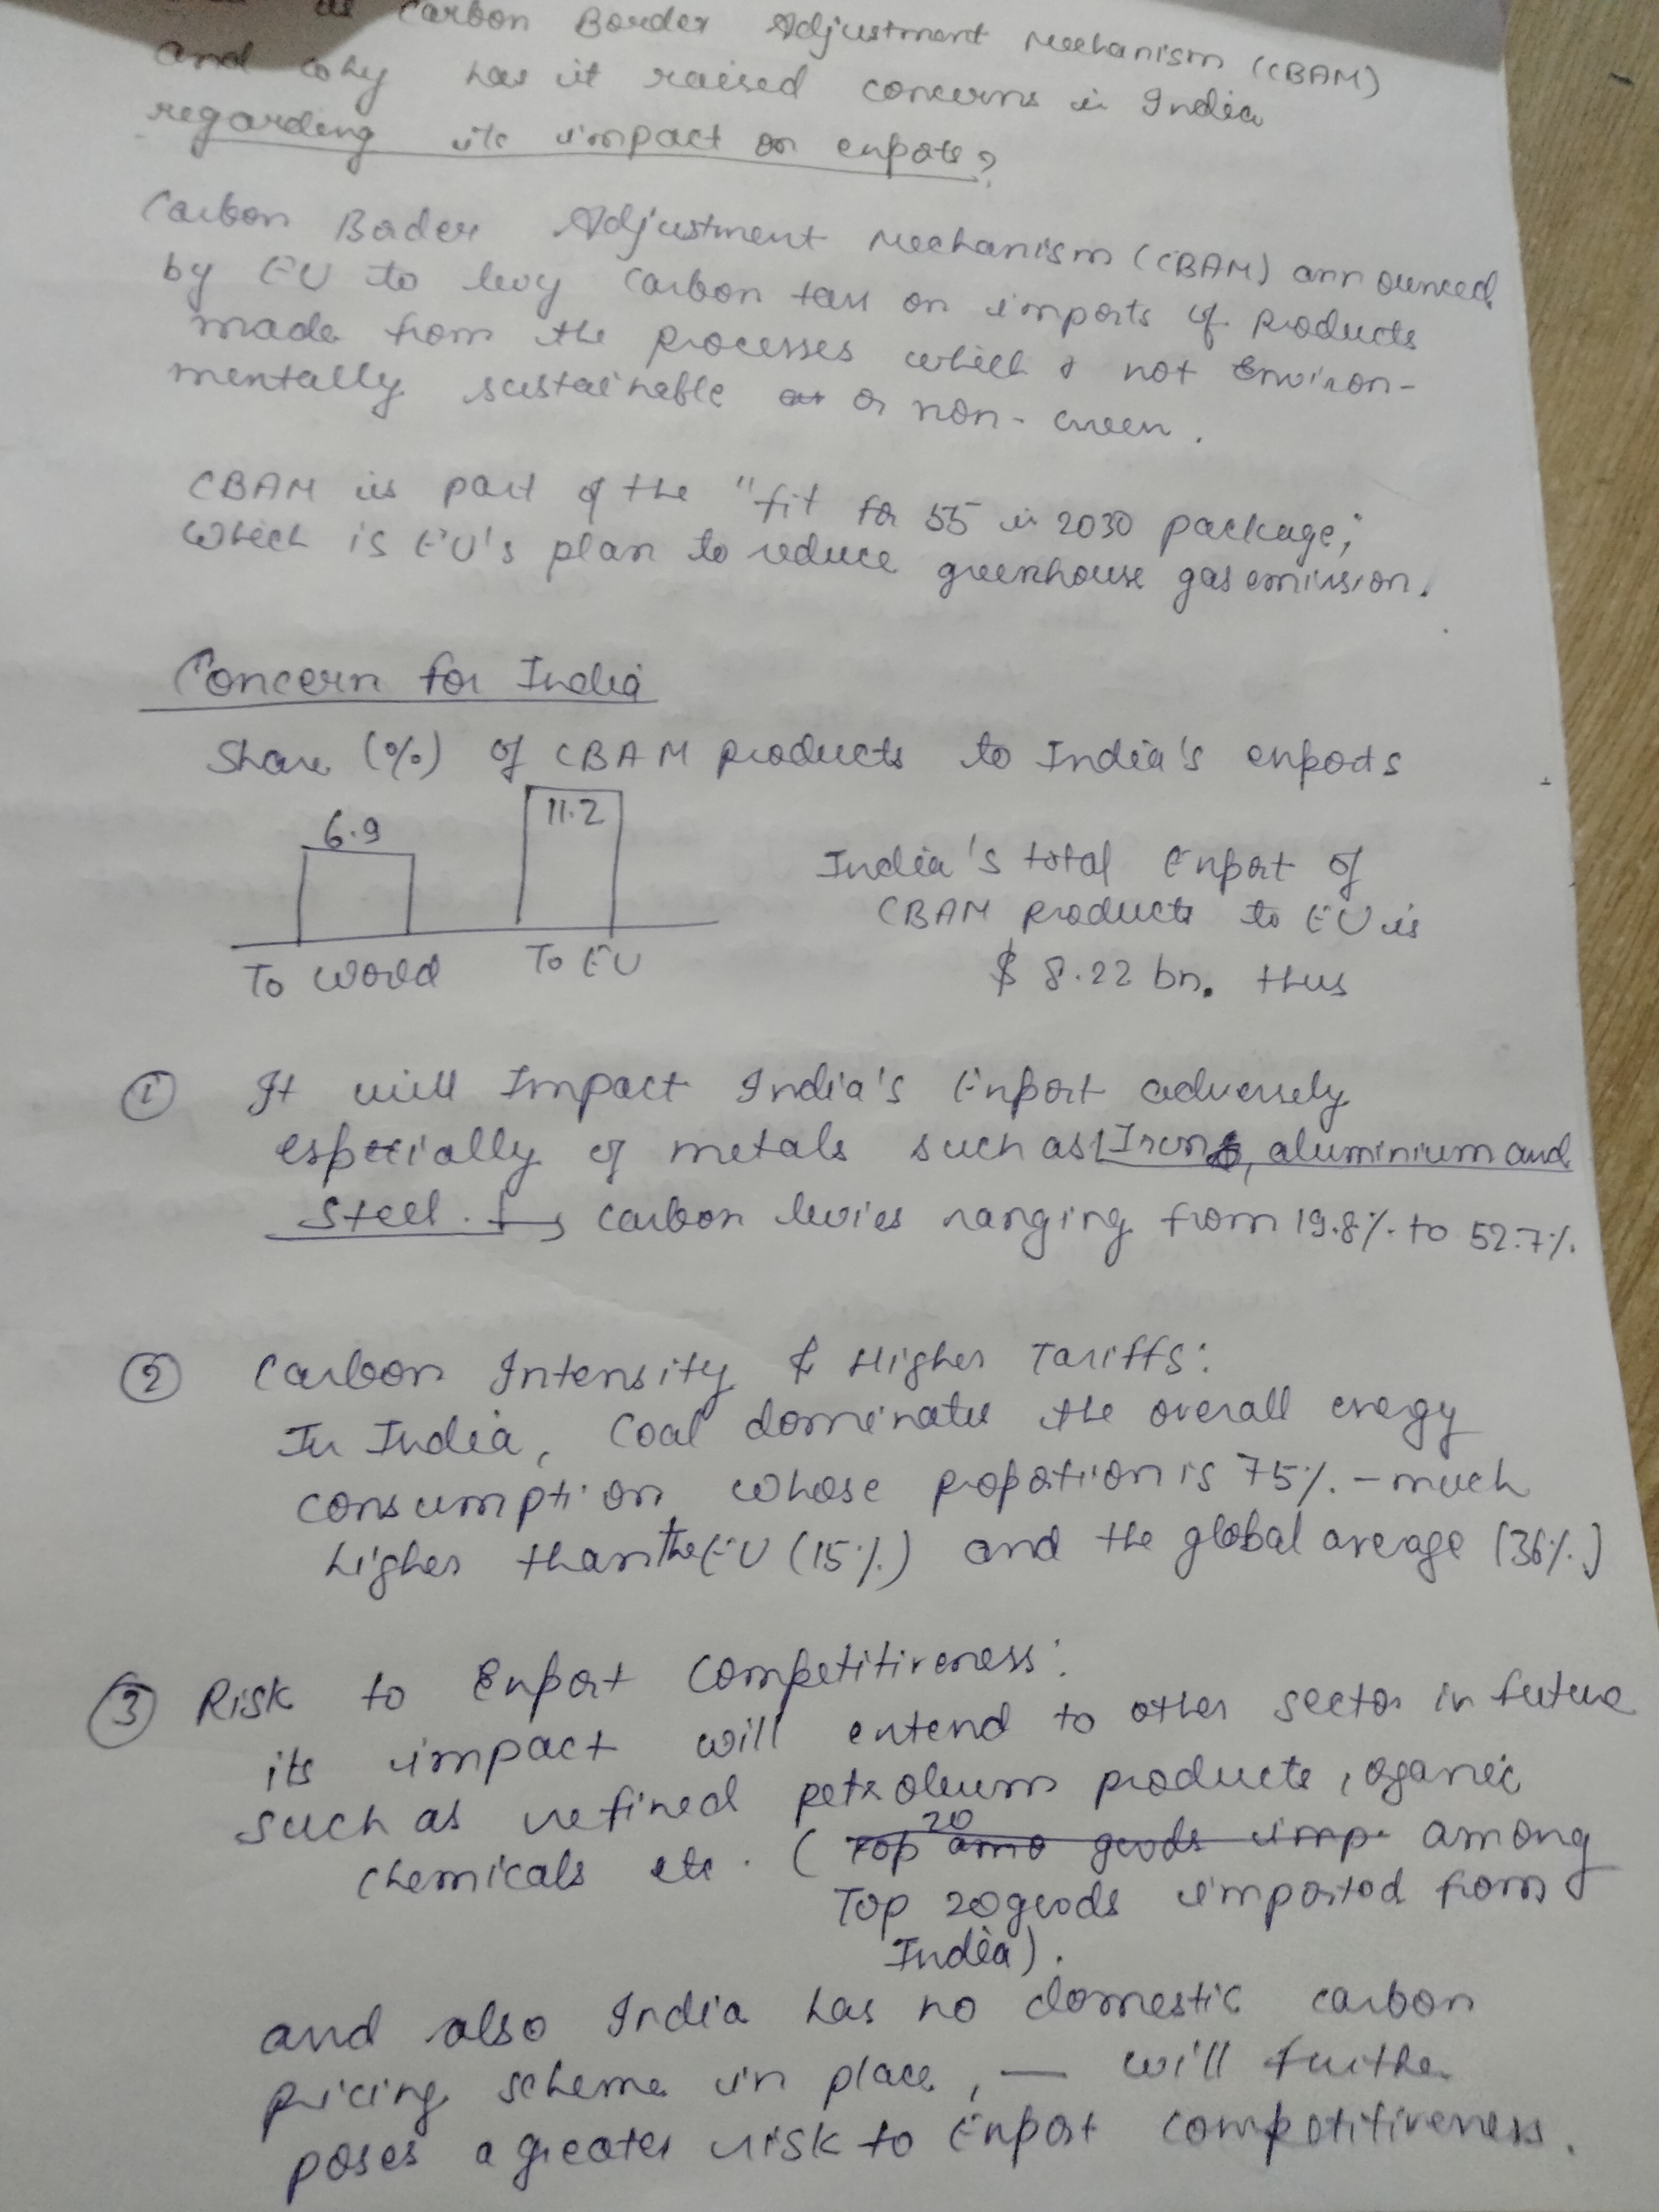 is Carbon Border Adjustment Mechanism (CBAM)
and why has it raised concerns in India
regarding its impact on exports?
Carbon Border Adjustment Mechanism (CBAM) announced
by EU to levy carbon tax on imports of products
made from the processes which r not Environ-
mentally sustainable or non-Green.
CBAM is part of the "fit for 55 in 2030 package,"
which is EU's plan to reduce greenhouse gas emission.
Concern for India
Share (%) of CBAM products to India's exports
6.9
11.2
To World
To EU
India's total Export of
CBAM products to EU is
$ 8.22 bn. thus
① It will Impact India's Export adversely
especially of metals such as Iron, aluminium and
Steel. → carbon levies ranging from 19.8% to 52.7%.
② Carbon Intensity & Higher Tariffs:
In India, Coal dominates the overall energy
consumption whose propotion is 75% - much
higher than the EU (15%) and the global average (36%)
③ Risk to Export Competitiveness:
its impact will extend to other sector in future
such as refined petroleum products, oganic
chemicals etc. (Top 20 amo goods imp. among
Top 20 goods imported from
India).
and also India has no domestic carbon
pricing scheme in place, — will further
poses a greater risk to Export competitiveness.